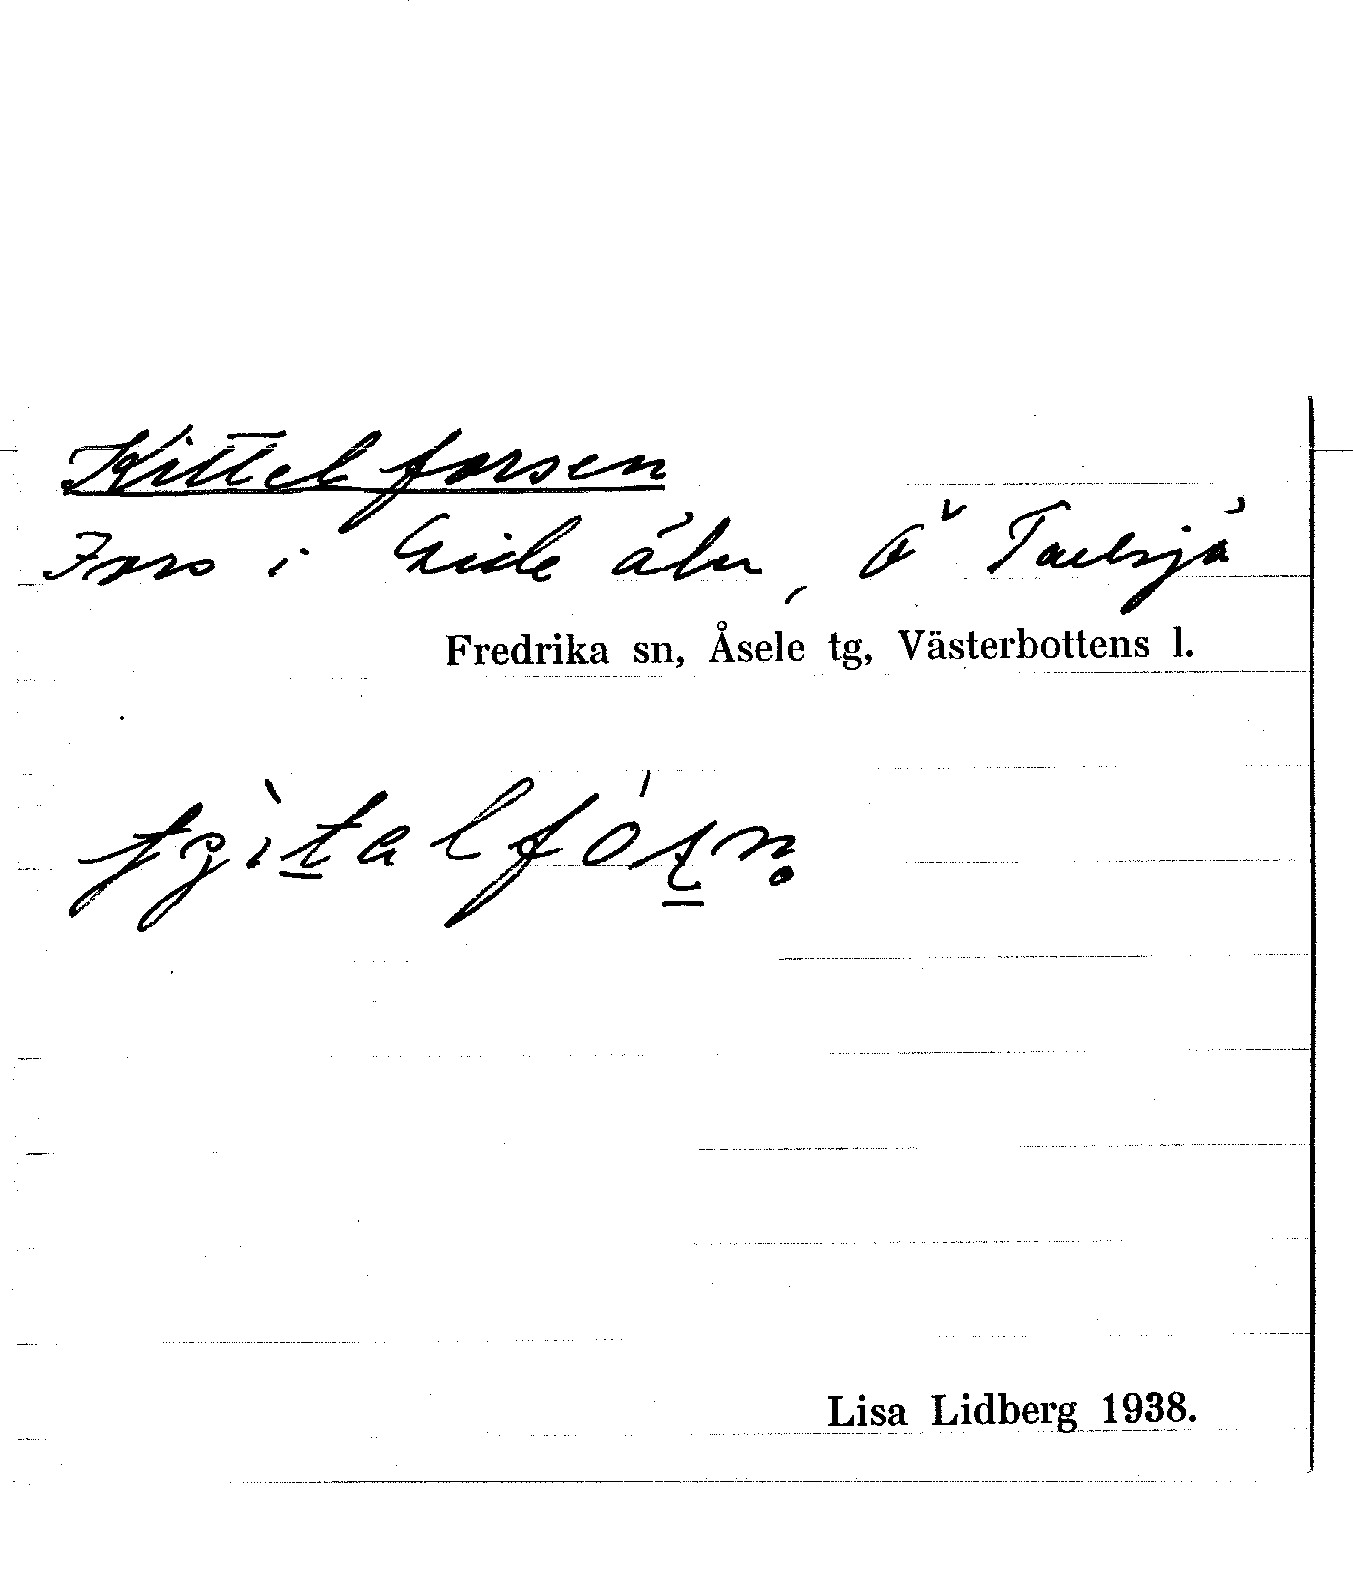 Kittelforsen
Fors i Gideälv, Ö Tallsjö
Fredrika sn, Åsele tg, Västerbottens l.
Lisa Lidberg 1938.